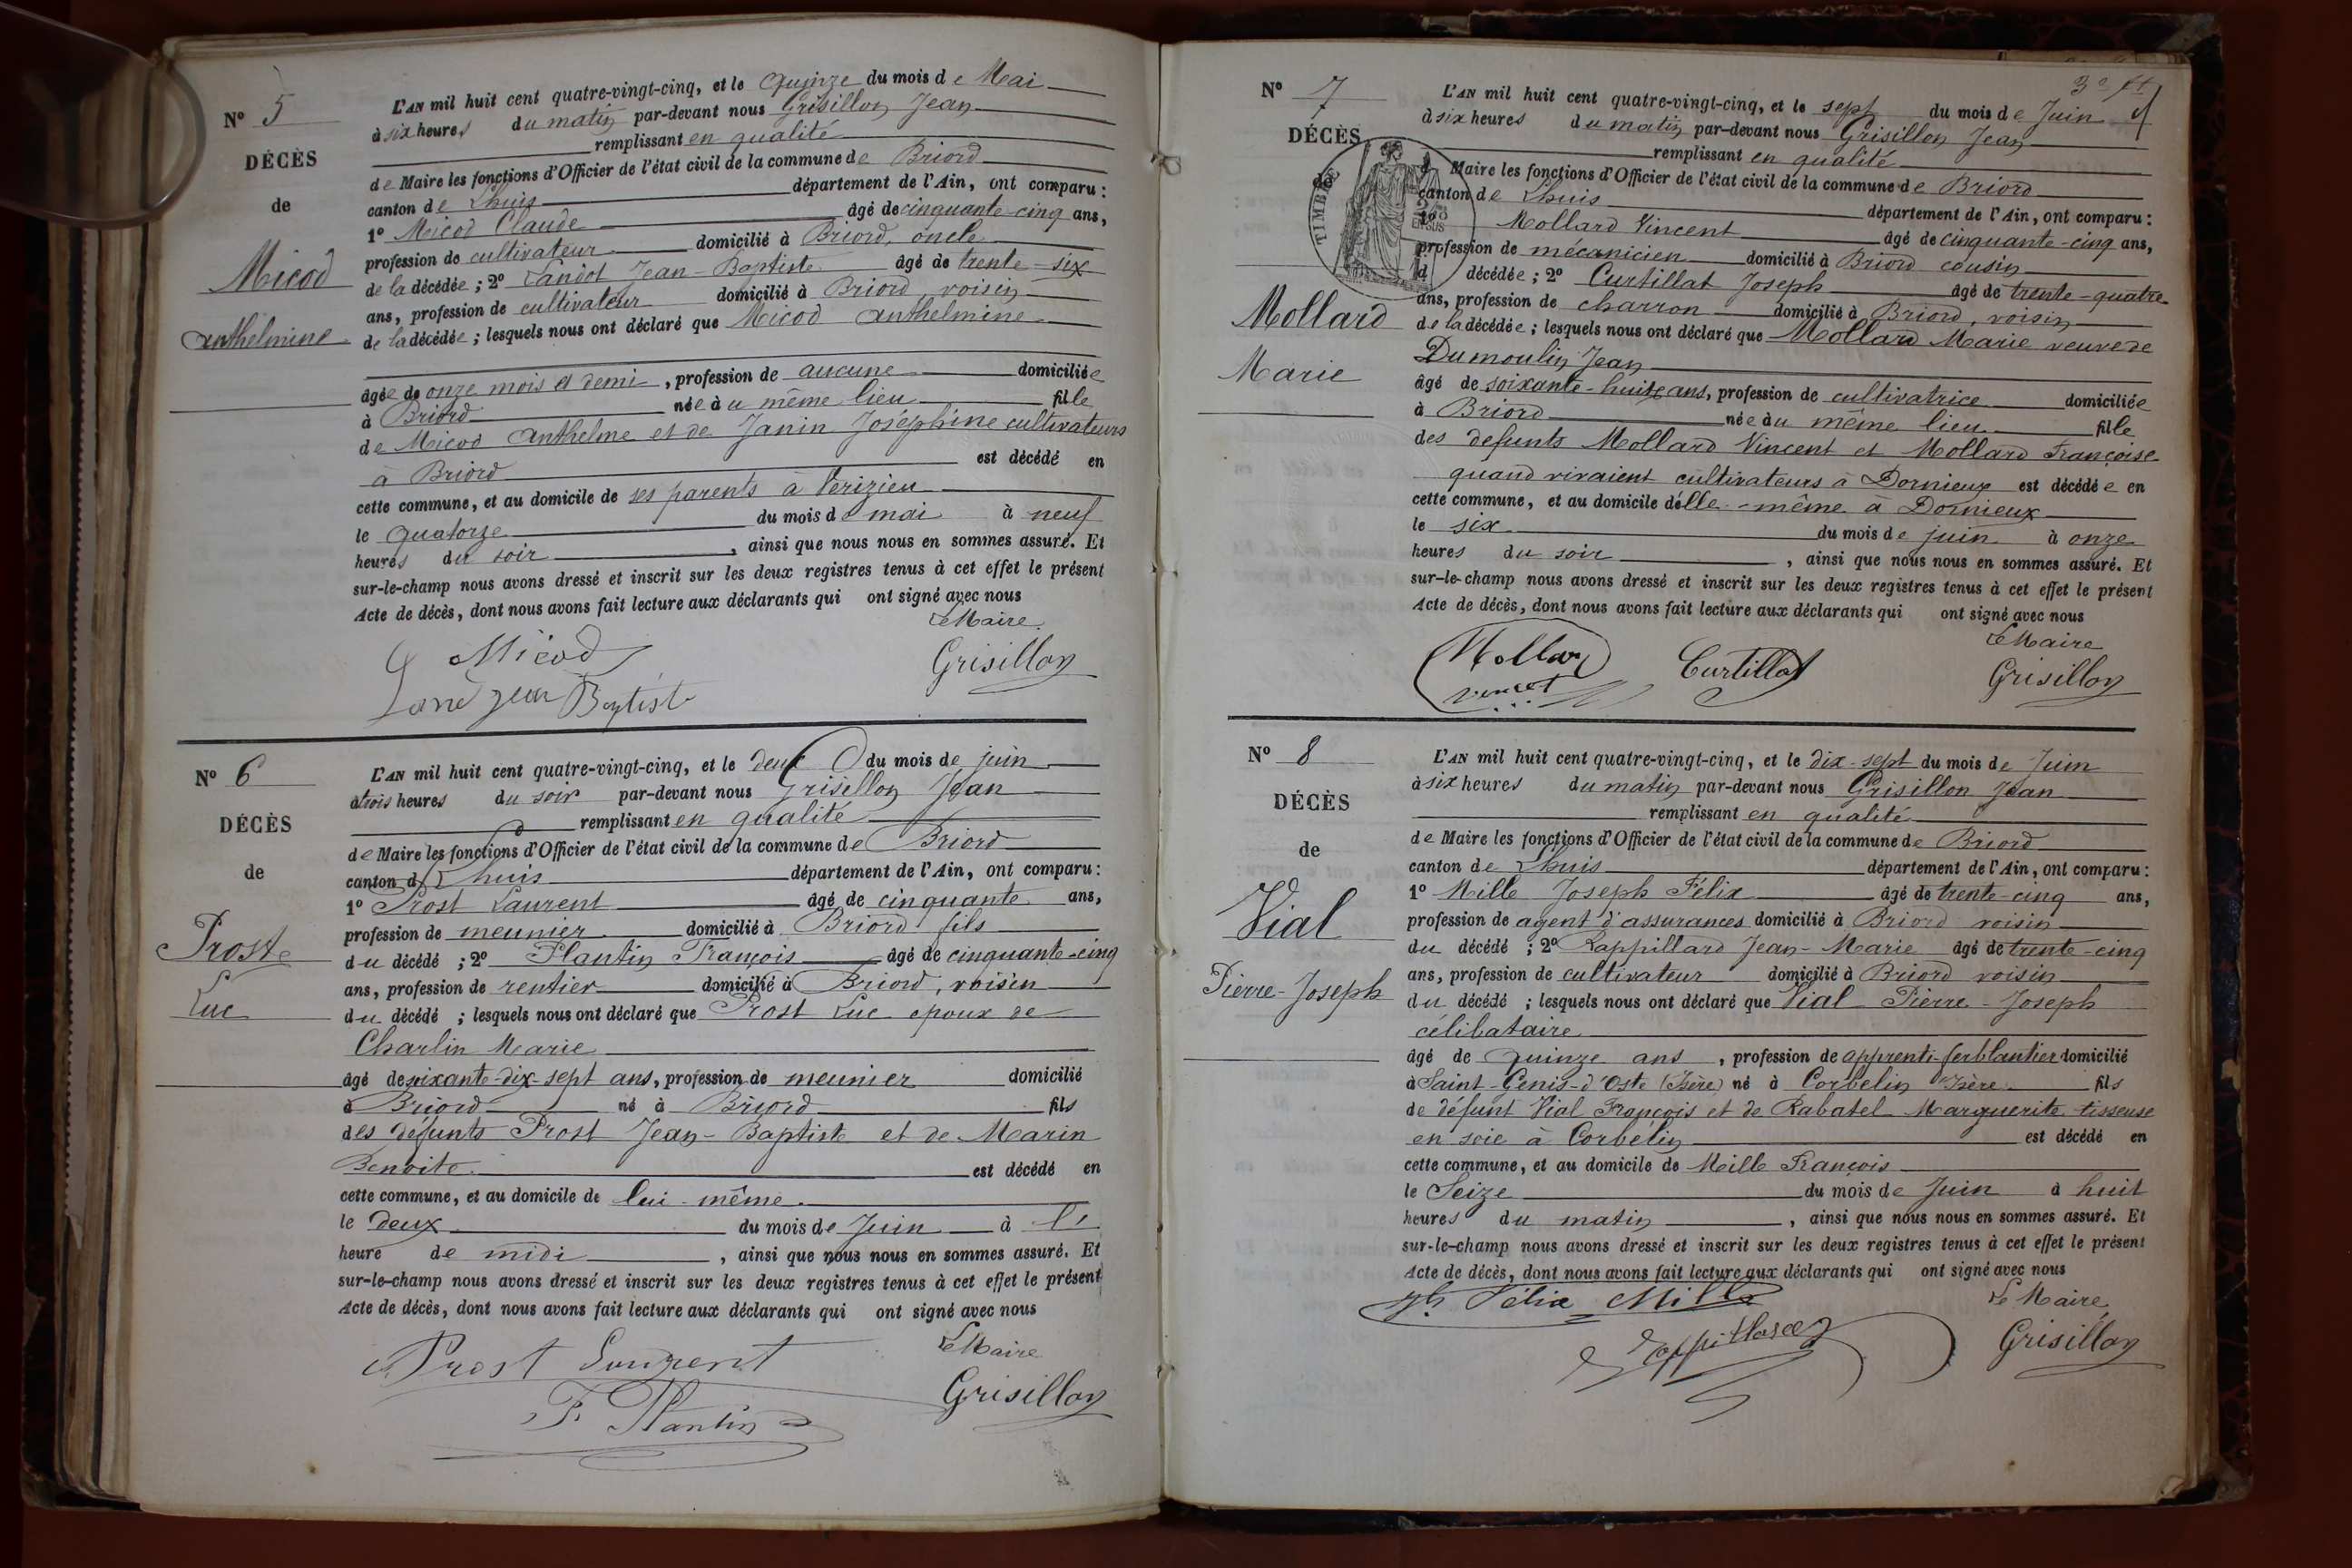 N° 5
DÉCÈS
de
Micod
Anthelmine
L'AN mil huit cent quatre-vingt-cinq, et le quinze du mois de Mai
à six heures du matin par-devant nous Grisillon Jean
remplissant en qualité
de Maire les fonctions d'Officier de l'état civil de la commune de Briord
canton de Lhuis département de l'Ain, ont comparu :
1° Micod Claude âgé de cinquante-cinq ans,
profession de cultivateur domicilié à Briord, oncle
de la décédée ; 2° Landot Jean-Baptiste âgé de trente-six
ans, profession de cultivateur domicilié à Briord, voisin
de la décédée ; lesquels nous ont déclaré que Micod Anthelmine
âgée de onze mois et demi, profession de aucune domiciliée
à Briord née au même lieu fille
de Micod Anthelme et de Janin Joséphine cultivateurs
à Briord est décédé en
cette commune, et au domicile de ses parents à Verizieu
le quatorze du mois de mai à neuf
heures du soir, ainsi que nous nous en sommes assuré. Et
sur-le-champ nous avons dressé et inscrit sur les deux registres tenus à cet effet le présent
Acte de décès, dont nous avons fait lecture aux déclarants qui ont signé avec nous
Le Maire
Micod Grisillon
Jean Baptiste
N° 6
DÉCÈS
de
Prost
Luc
L'AN mil huit cent quatre-vingt-cinq, et le deux du mois de juin
à trois heures du soir par-devant nous Grisillon Jean
remplissant en qualité
de Maire les fonctions d'Officier de l'état civil de la commune de Briord
canton de Lhuis département de l'Ain, ont comparu :
1° Prost Laurent âgé de cinquante ans,
profession de meunier domicilié à Briord fils
du décédé ; 2° Plantin François âgé de cinquante-cinq
ans, profession de rentier domicilié à Briord, voisin
du décédé ; lesquels nous ont déclaré que Prost Luc époux de
Charlin Marie
âgé de soixante-dix-sept ans, profession de meunier domicilié
à Briord né à Briord fils
des défunts Prost Jean-Baptiste et de Marin
Benoite est décédé en
cette commune, et au domicile de lui-même
le deux du mois de Juin à l'
heure de midi, ainsi que nous nous en sommes assuré. Et
sur-le-champ nous avons dressé et inscrit sur les deux registres tenus à cet effet le présent
Acte de décès, dont nous avons fait lecture aux déclarants qui ont signé avec nous
Le Maire
Prost Laurent
F. Plantin Grisillon
3e ft
N° 7
DÉCÈS
de
Mollard
Marie
TIMBRE
L'AN mil huit cent quatre-vingt-cinq, et le sept du mois de Juin
à six heures du matin par-devant nous Grisillon Jean
remplissant en qualité
d Maire les fonctions d'Officier de l'état civil de la commune de Briord
canton de Lhuis département de l'Ain, ont comparu :
1° Mollard Vincent âgé de cinquante-cinq ans,
profession de mécanicien domicilié à Briord cousin
d décédée ; 2° Curtillat Joseph âgé de trente-quatre
ans, profession de charron domicilié à Briord, voisin
de la décédée ; lesquels nous ont déclaré que Mollard Marie veuve de
Dumoulin Jean
âgé de soixante-huit ans, profession de cultivatrice domiciliée
à Briord née au même lieu fille
des defunts Mollard Vincent et Mollard Françoise
quand vivaient cultivateurs à Dornieux est décédée en
cette commune, et au domicile d'elle-même à Dornieux
le six du mois de juin à onze
heures du soir, ainsi que nous nous en sommes assuré. Et
sur-le-champ nous avons dressé et inscrit sur les deux registres tenus à cet effet le présent
Acte de décès, dont nous avons fait lecture aux déclarants qui ont signé avec nous
Le Maire
Mollard Curtillat Grisillon
N° 8
DÉCÈS
de
Vial
Pierre-Joseph
L'AN mil huit cent quatre-vingt-cinq, et le dix-sept du mois de Juin
à six heures du matin par-devant nous Grisillon Jean
remplissant en qualité
de Maire les fonctions d'Officier de l'état civil de la commune de Briord
canton de Lhuis département de l'Ain, ont comparu :
1° Mille Joseph Félix âgé de trente-cinq ans,
profession de agent d'assurances domicilié à Briord voisin
du décédé ; 2° Rappillard Jean-Marie âgé de trente-cinq
ans, profession de cultivateur domicilié à Briord voisin
du décédé ; lesquels nous ont déclaré que Vial Pierre-Joseph
célibataire
âgé de quinze ans, profession de apprenti-ferblantier domicilié
à Saint-Genis-d'Oste (Isère) né à Corbelin Isère fils
de défunt Vial François et de Rabatel Marguerite tisseuse
en soie à Corbelin est décédé en
cette commune, et au domicile de Mille François
le Seize du mois de Juin à huit
heures du matin, ainsi que nous nous en sommes assuré. Et
sur-le-champ nous avons dressé et inscrit sur les deux registres tenus à cet effet le présent
Acte de décès, dont nous avons fait lecture aux déclarants qui ont signé avec nous
Jh Félix Mille Le Maire
Rappillard Grisillon